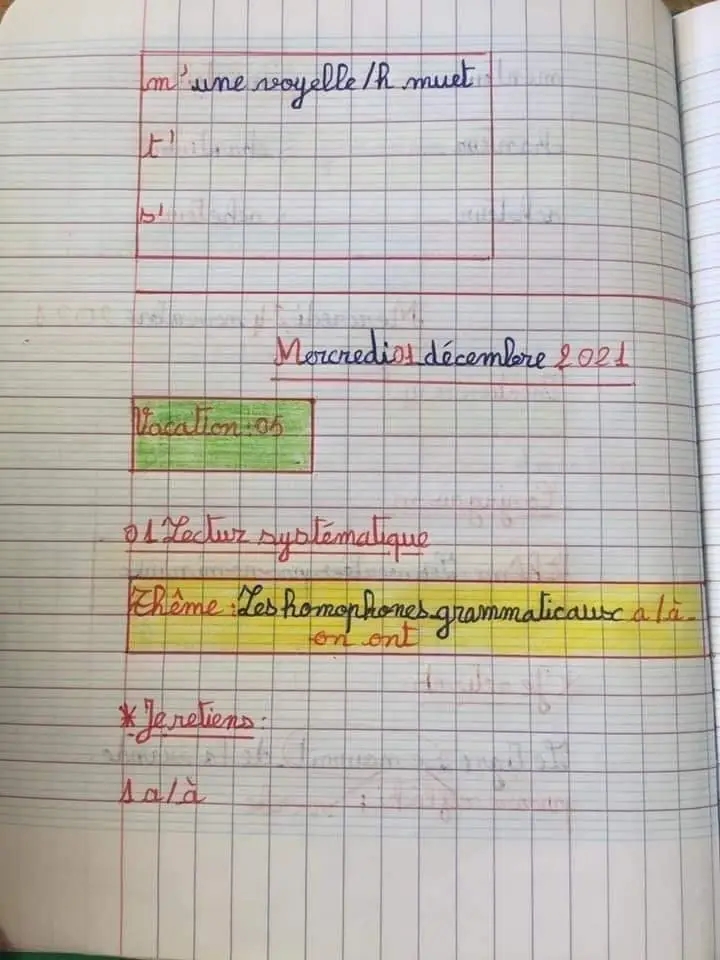 m' une voyelle/h muet
t'
s'
Mercredi 01 décembre 2021
Vacation : 05
01 Lectur systématique
Thême : Les homophones grammaticaux a/à -
on ont
* Je retiens :
1 a/à